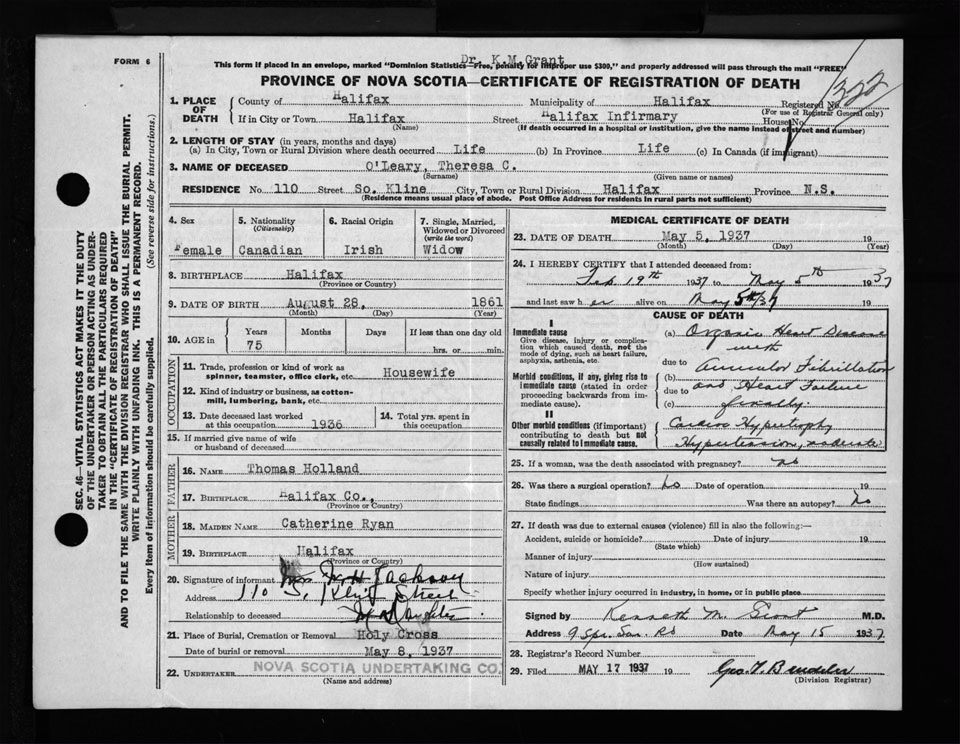 FORM 6
Dr. K.M.Grant
This form if placed in an envelope, marked "Dominion Statistics—Free, penalty for improper use $300," and properly addressed will pass through the mail "FREE"
PROVINCE OF NOVA SCOTIA—CERTIFICATE OF REGISTRATION OF DEATH
322
1. PLACE OF DEATH
County of Halifax Municipality of Halifax Registered No.
(For use of Registrar General only)
If in City or Town Halifax Street Halifax Infirmary House No.
(Name) (If death occurred in a hospital or institution, give the name instead of street and number)
2. LENGTH OF STAY (in years, months and days)
(a) In City, Town or Rural Division where death occurred Life (b) In Province Life (c) In Canada (if immigrant)
3. NAME OF DECEASED O'Leary, Theresa C.
(Surname) (Given name or names)
RESIDENCE No. 110 Street So. Kline City, Town or Rural Division Halifax Province N.S.
(Residence means usual place of abode. Post Office Address for residents in rural parts not sufficient)
4. Sex
Female
5. Nationality
(Citizenship)
Canadian
6. Racial Origin
Irish
7. Single, Married, Widowed or Divorced
(write the word)
Widow
8. BIRTHPLACE Halifax
(Province or Country)
9. DATE OF BIRTH August 28, 1861
(Month) (Day) (Year)
10. AGE in
Years Months Days If less than one day old
75 hrs. or min.
OCCUPATION
11. Trade, profession or kind of work as
spinner, teamster, office clerk, etc. Housewife
12. Kind of industry or business, as cotton-
mill, lumbering, bank, etc.
13. Date deceased last worked
at this occupation 1936
14. Total yrs. spent in
this occupation
15. If married give name of wife
or husband of deceased
FATHER
16. NAME Thomas Holland
17. BIRTHPLACE Halifax Co.,
(Province or Country)
MOTHER
18. MAIDEN NAME Catherine Ryan
19. BIRTHPLACE Halifax
(Province or Country)
20. Signature of informant Mrs Jackson
Address 110 S. Street
Relationship to deceased Daughter
21. Place of Burial, Cremation or Removal Holy Cross
Date of burial or removal May 8, 1937
22. UNDERTAKER NOVA SCOTIA UNDERTAKING CO.
(Name and address)
MEDICAL CERTIFICATE OF DEATH
23. DATE OF DEATH May 5, 1937 19
(Month) (Day) (Year)
24. I HEREBY CERTIFY that I attended deceased from:
Feb. 19th 1937 to May 5th 1937
and last saw her alive on May 5th/37 19
CAUSE OF DEATH
I
Immediate cause
Give disease, injury or complica-
tion which caused death, not the
mode of dying, such as heart failure,
asphyxia, asthenia, etc.
Morbid conditions, if any, giving rise to
immediate cause (stated in order
proceeding backwards from im-
mediate cause).
II
Other morbid conditions (if important)
contributing to death but not
causally related to immediate cause.
(a) Organic Heart Disease
with
due to
(b) Auricular Fibrillation
due to and Heart Failure
(c) finally.
Cardiac Hypertrophy
Hypertension, moderate
25. If a woman, was the death associated with pregnancy? no
26. Was there a surgical operation? No Date of operation 19
State findings Was there an autopsy? No
27. If death was due to external causes (violence) fill in also the following:—
Accident, suicide or homicide? Date of injury 19
(State which)
Manner of injury
(How sustained)
Nature of injury
Specify whether injury occurred in industry, in home, or in public place
Signed by Kenneth M. Grant M.D.
Address 9 Spr. Gar. Rd Date May 15 1937
28. Registrar's Record Number
29. Filed MAY 17 1937 19
(Division Registrar)
SEC. 46—VITAL STATISTICS ACT MAKES IT THE DUTY
OF THE UNDERTAKER OR PERSON ACTING AS UNDER-
TAKER TO OBTAIN ALL THE PARTICULARS REQUIRED
IN THE "CERTIFICATE OF REGISTRATION OF DEATH"
AND TO FILE THE SAME WITH THE DIVISION REGISTRAR WHO SHALL ISSUE THE BURIAL PERMIT.
WRITE PLAINLY WITH UNFADING INK. THIS IS A PERMANENT RECORD.
Every item of information should be carefully supplied. (See reverse side for instructions.)